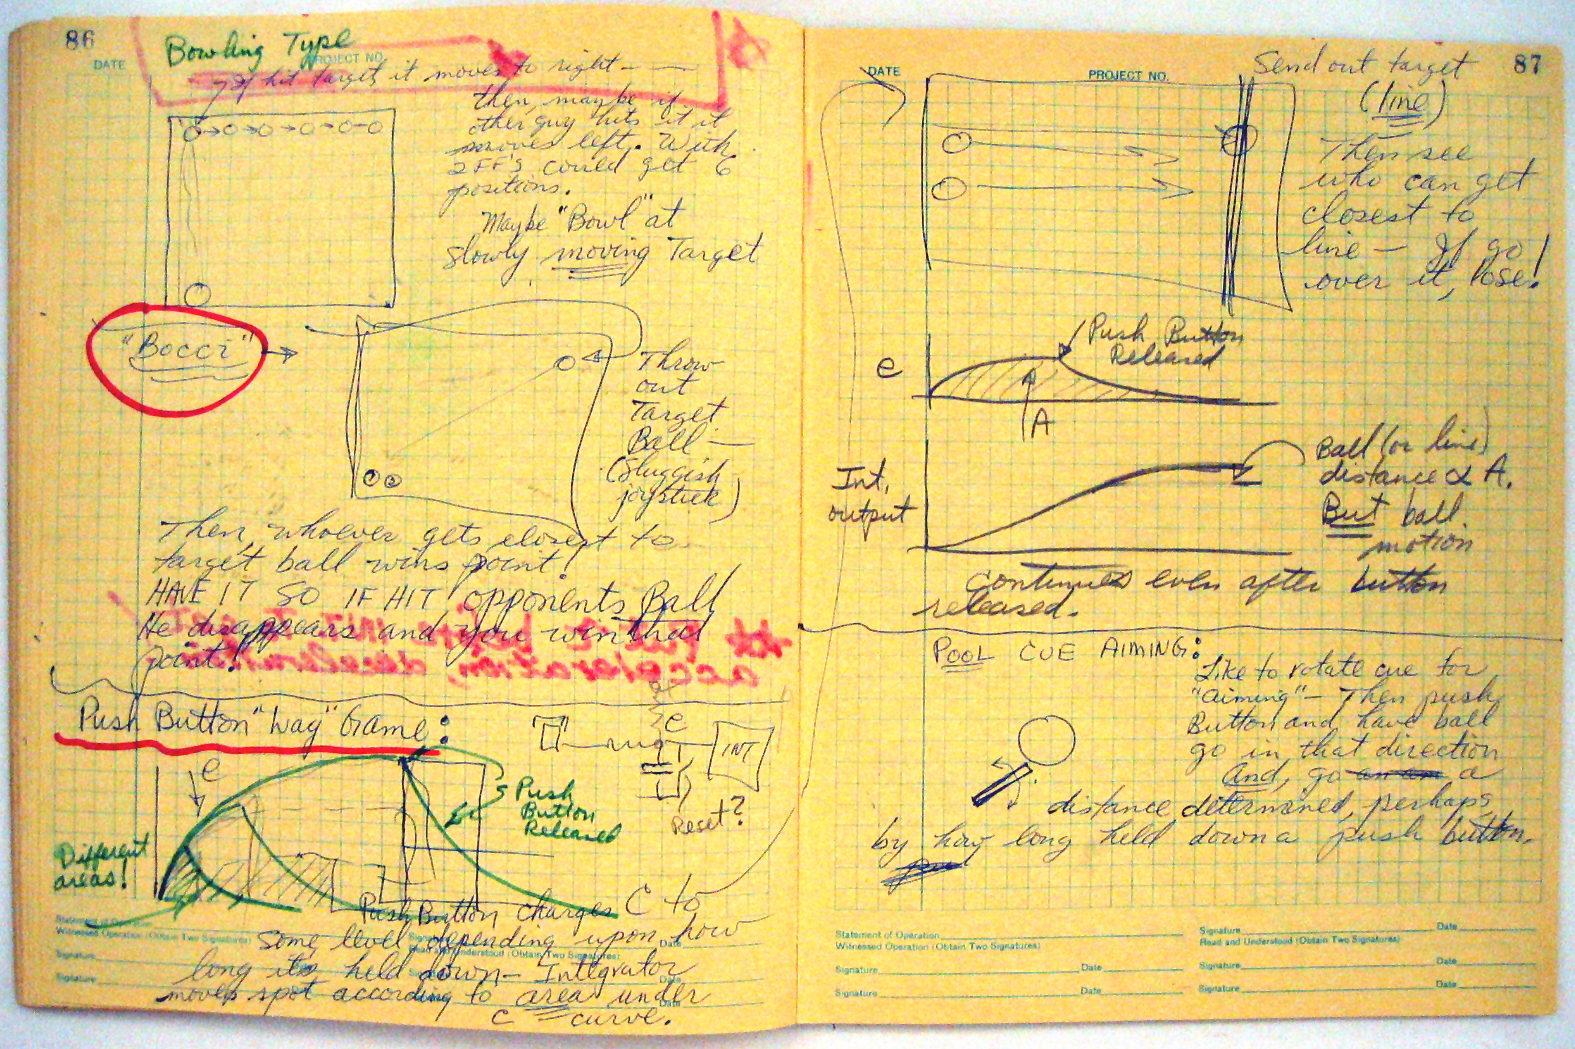 86
DATE
Bowling Type
PROJECT NO.
If hit target, it moves to right — —
then, maybe if
other guy hits it it
moves left. With
2 FF's could get 6
positions.
Maybe "Bowl" at
slowly moving Target
"Bocci"
Throw
out
Target
Ball —
(Sluggish
joystick)
Then, whoever gets closest to
target ball wins point!
HAVE IT SO IF HIT opponents Ball
He disappears and you win that
point!
Push Button "Wag" Game:
e
e
INT
Reset?
Push
Button
Released
Different
areas!
Push Button charges C to
some level depending upon how
long it's held down — Integrator
moves spot according to area under
C curve.
Statement of Operation
Witnessed Operation (Obtain Two Signatures)
Signature
Read and Understood (Obtain Two Signatures)
Date
Signature
Date
Signature
Date
87
DATE
PROJECT NO.
Send out target
(line)
Then see
who can get
closest to
line — If go
over it, lose!
e
Push Button
Released
A
Int.
output
Ball (or line)
distance ∝ A.
But ball
motion
continues even after button
released.
POOL CUE AIMING:
Like to rotate cue for
"aiming" — Then push
Button and, have ball
go in that direction
And, go a
distance determined, perhaps
by how long held down a push button.
Statement of Operation
Witnessed Operation (Obtain Two Signatures)
Signature Date
Read and Understood (Obtain Two Signatures)
Signature Date
Signature Date
Signature Date
Signature Date